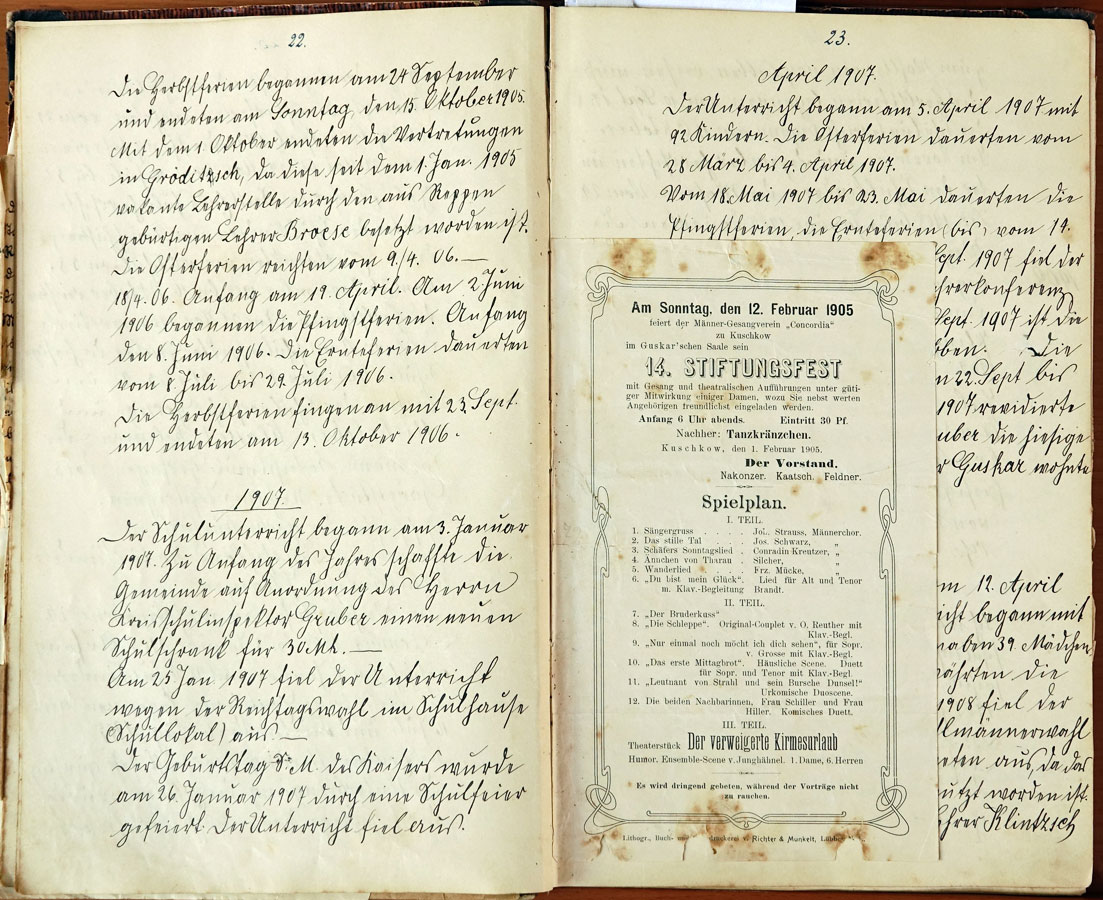 22.
Die Herbstferien begannen am 24 September
und endeten am Sonntag, den 15. Oktober 1905.
Mit dem 1 Oktober endeten die Vertretungen
in Gröditzsch, da diese seit dem 1 Jan. 1905
vakante Lehrerstelle durch den aus Reppen
gebürtigen Lehrer Broese besetzt worden ist.
Die Osterferien reichten vom 9./4. 06. —
18/4. 06. Anfang am 19. April. Am 2 Juni
1906 begannen die Pfingstferien. Anfang
den 8. Juni 1906. Die Ernteferien dauerten
vom 8. Juli bis 29. Juli 1906.
Die Herbstferien fingen an mit 23. Sept.
und endeten am 13. Oktober 1906.
1907.
Der Schulunterricht begann am 3. Januar
1907. Zu Anfang des Jahres schaffte die
Gemeinde auf Anordnung des Herrn
Kreisschulinspektor Gruber einen neuen
Schulschrank für 30 Mk. —
Am 25 Jan. 1907 fiel der Unterricht
wegen der Reichtagswahl im Schulhause
(Schullokal) aus —
Der Geburtstag Sr. M. des Kaisers wurde
am 26. Januar 1907 durch eine Schulfeier
gefeiert. Der Unterricht fiel aus.
23.
April 1907.
Der Unterricht begann am 5. April 1907 mit
92 Kindern. Die Osterferien dauerten vom
28 März bis 4. April 1907.
Vom 18. Mai 1907 bis 23. Mai dauerten die
Pfingstferien, die Ernteferien (bis) vom 14.
Sept. 1907 fiel der
hrerkonferenz
Sept. 1907 ist die
oben. Die
22. Sept bis
1907 revidierte
uber die hiesige
Guskar wohnte
12. April
icht begann mit
aben 39. Mädchen
währten die
1908 fiel der
lmännerwahl
eten aus, da das
utzt worden ist.
ehrer Klintzsch
Am Sonntag, den 12. Februar 1905
feiert der Männer-Gesangverein „Concordia“
zu Kuschkow
im Guskar'schen Saale sein
14. STIFTUNGSFEST
mit Gesang und theatralischen Aufführungen unter güti-
ger Mitwirkung einiger Damen, wozu Sie nebst werten
Angehörigen freundlichst eingeladen werden.
Anfang 6 Uhr abends. Eintritt 30 Pf.
Nachher: Tanzkränzchen.
Kuschkow, den 1. Februar 1905.
Der Vorstand.
Nakonzer. Kaatsch. Feldner.
Spielplan.
I. TEIL.
1. Sängergruss . . . . . Joh. Strauss, Männerchor.
2. Das stille Tal . . . . Jos. Schwarz, „
3. Schäfers Sonntagslied . Conradin Kreutzer, „
4. Ännchen von Tharau . Silcher, „
5. Wanderlied . . . . . Frz. Mücke, „
6. „Du bist mein Glück“. Lied für Alt und Tenor
m. Klav.-Begleitung Brandt.
II. TEIL.
7. „Der Bruderkuss“
8. „Die Schleppe“. Original-Couplet v. O. Reuther mit
Klav.-Begl.
9. „Nur einmal noch möcht ich dich sehen“, für Sopr.
v. Grosse mit Klav.-Begl.
10. „Das erste Mittagbrot“. Häusliche Scene. Duett
für Sopr. und Tenor mit Klav.-Begl.
11. „Leutnant von Strahl und sein Bursche Dunsel!“
Urkomische Duoscene.
12. Die beiden Nachbarinnen, Frau Schiller und Frau
Hiller. Komisches Duett.
III. TEIL.
Theaterstück Der verweigerte Kirmesurlaub
Humor. Ensemble-Scene v. Junghähnel. 1. Dame, 6. Herren
Es wird dringend gebeten, während der Vorträge nicht
zu rauchen.
Lithogr., Buch- und druckerei v. Richter & Munkelt,